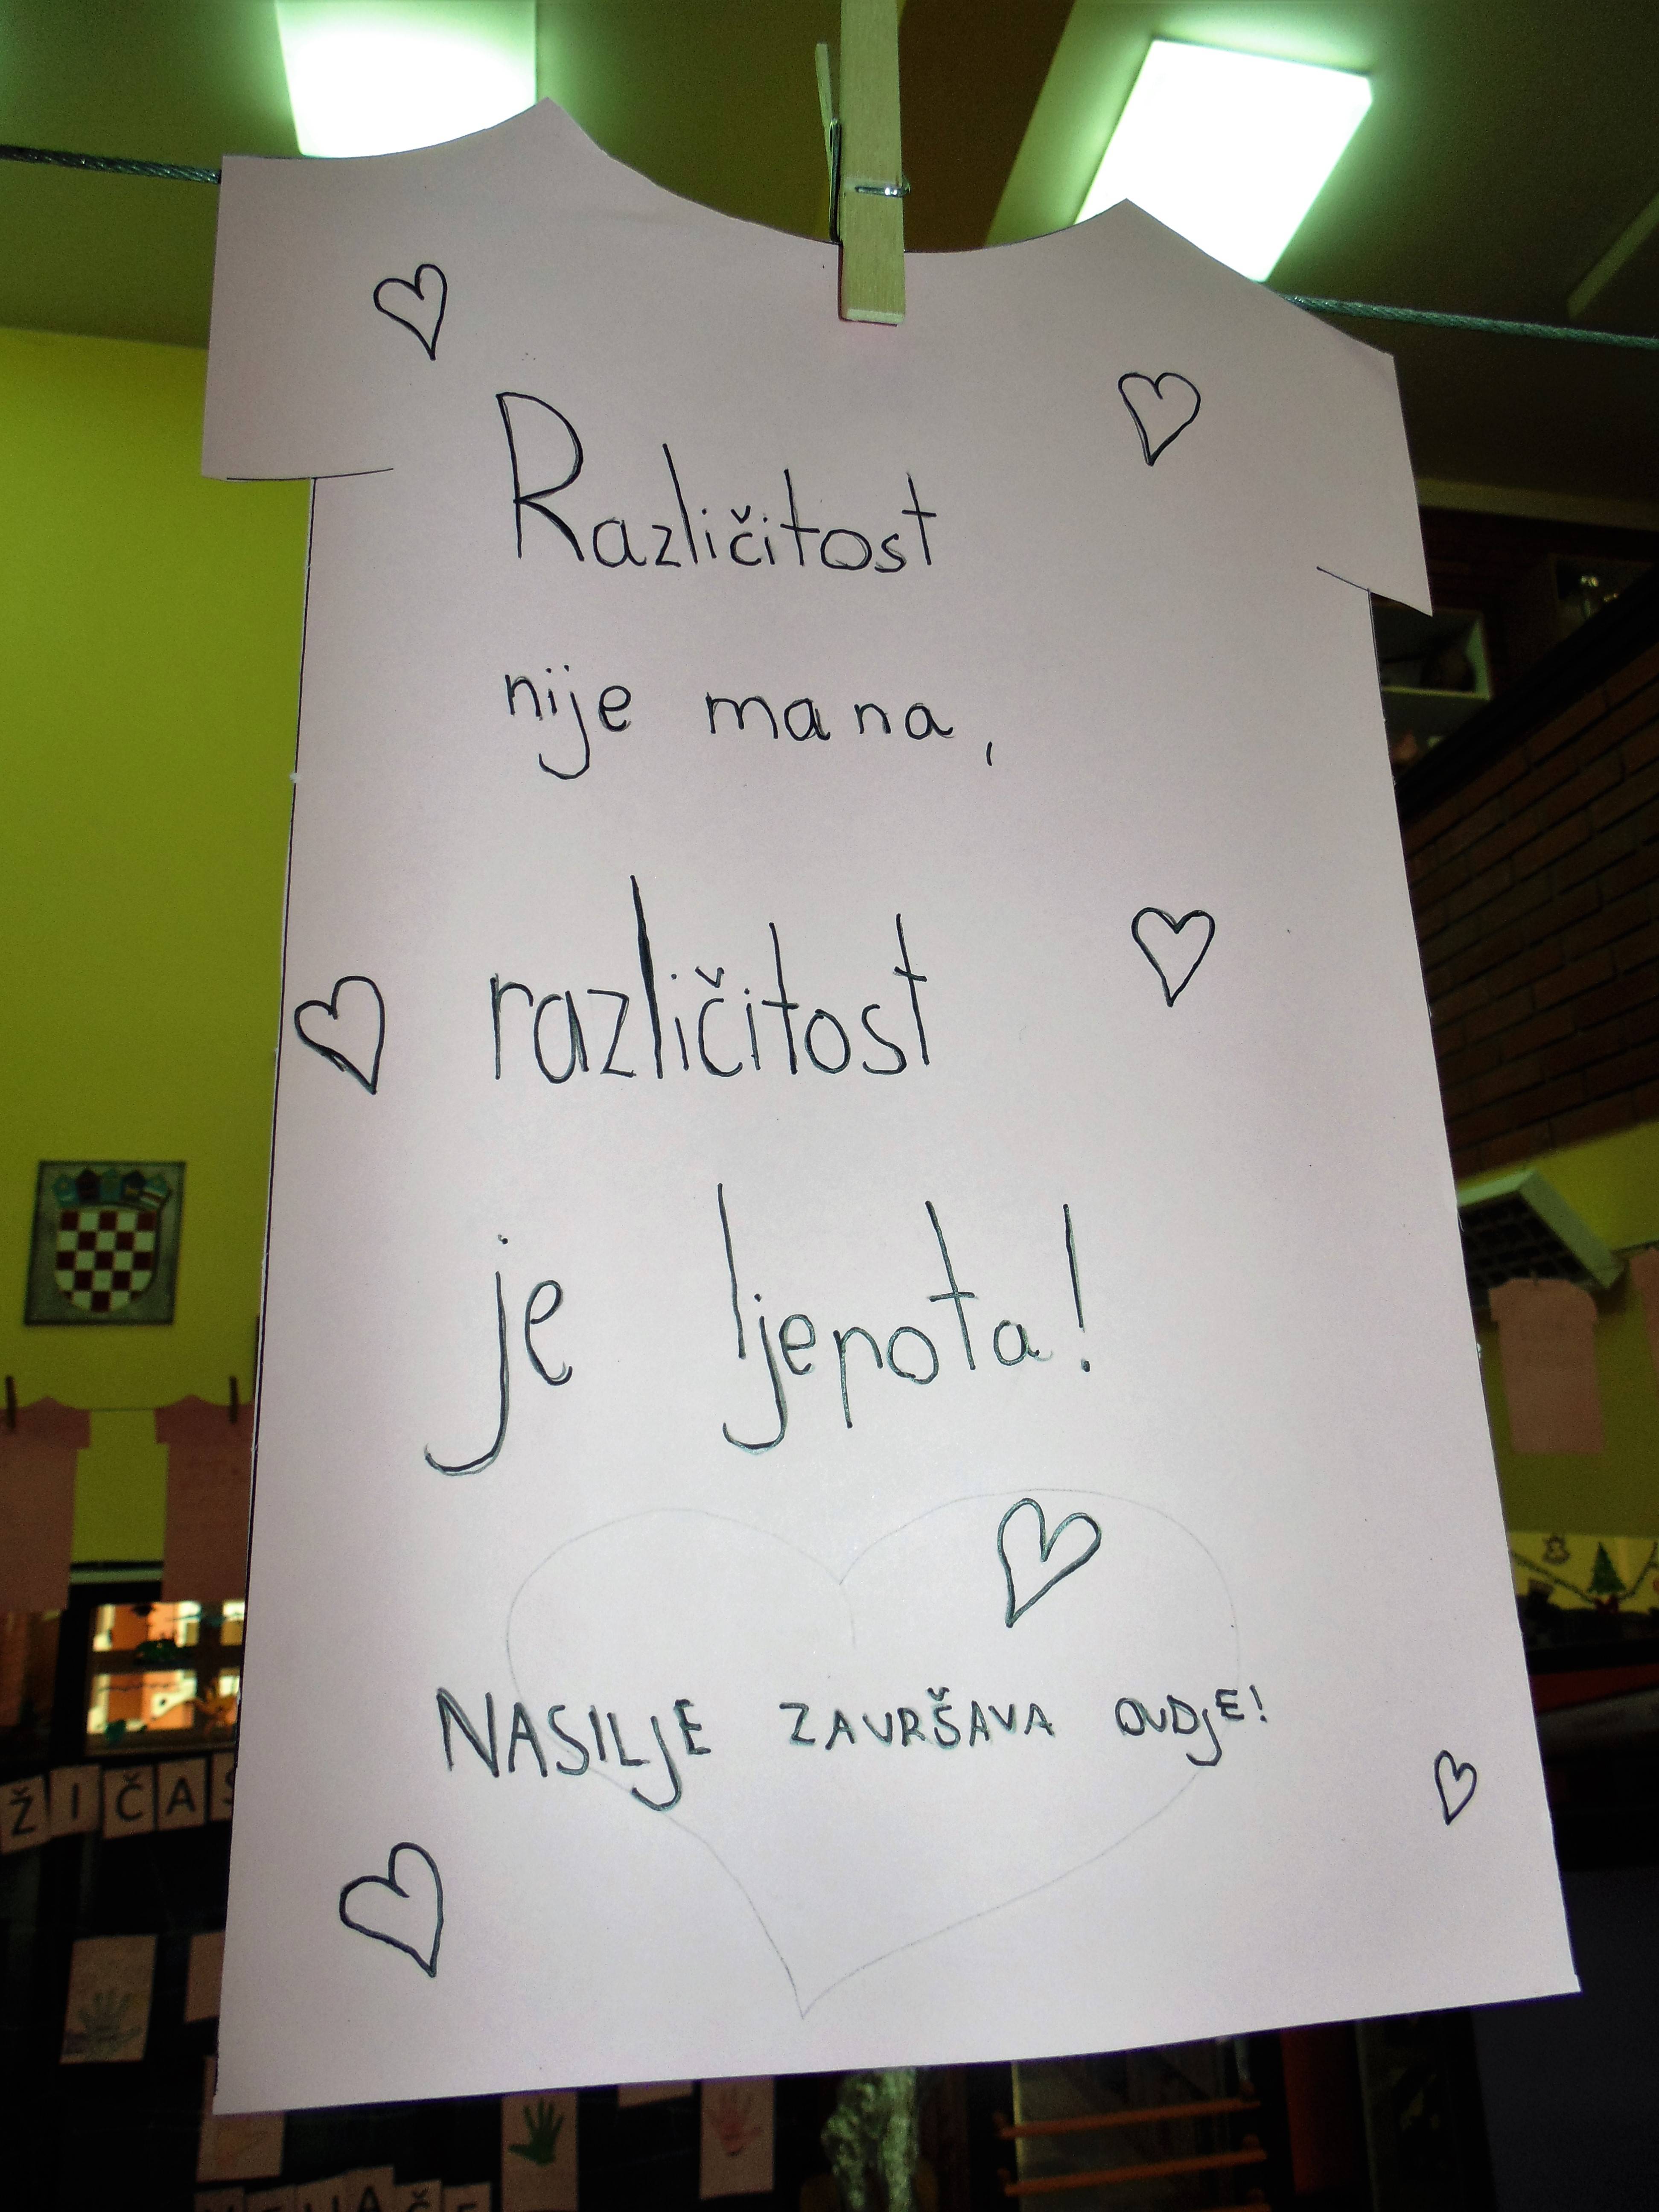 Različitost
nije mana,
različitost
je ljepota!
NASILJE ZAVRŠAVA OVDJE!